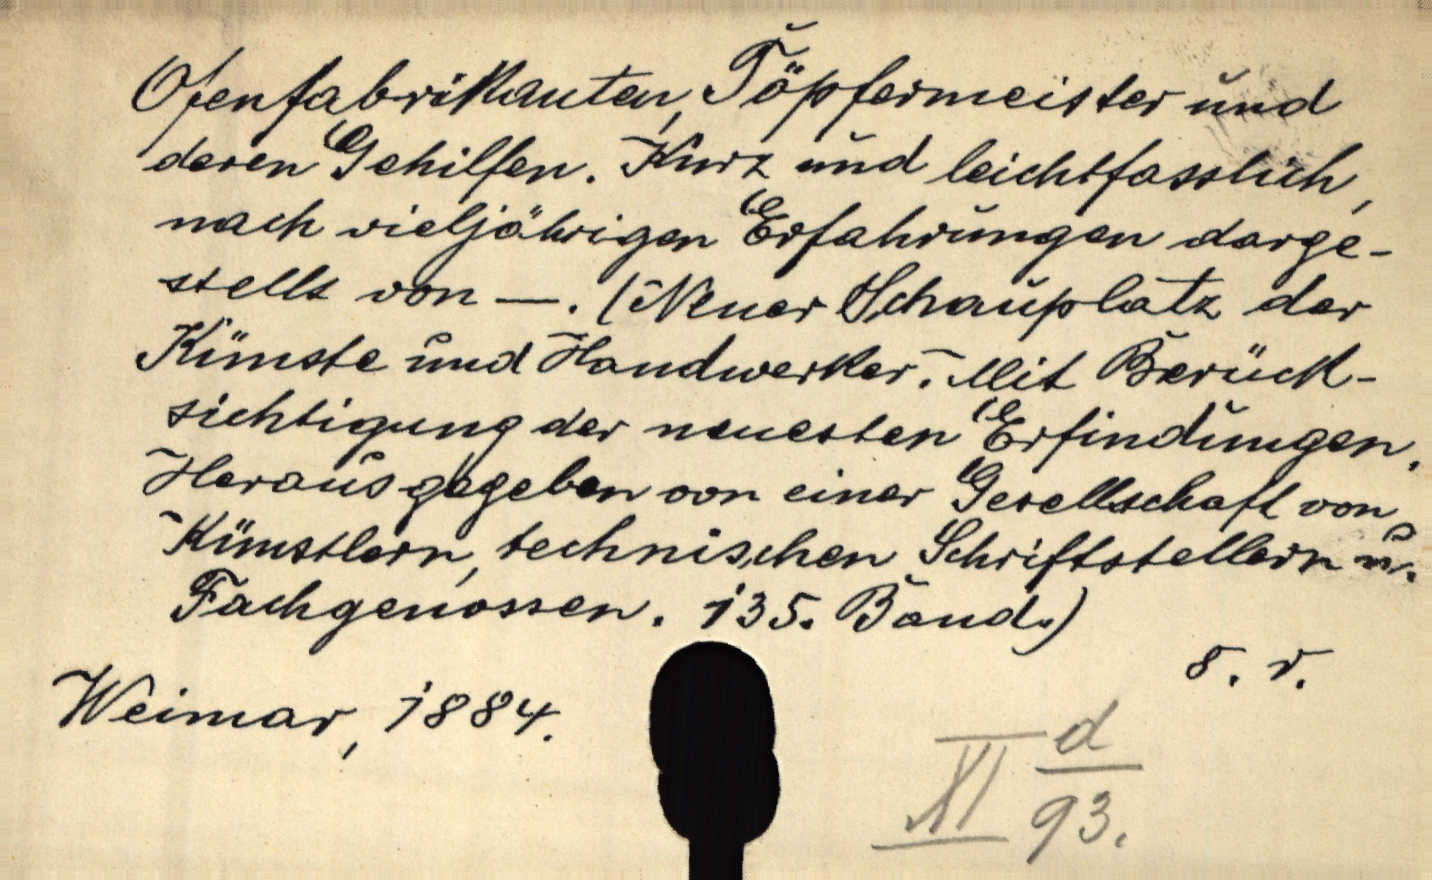 Ofenfabrikanten, Töpfermeister und
deren Gehilfen. Kurz und leichtfasslich,
nach vieljährigen Erfahrungen darge-
stellt von —. (Neuer Schauplatz der
Künste und Handwerker. Mit Berück-
sichtigung der neuesten Erfindungen.
Herausgegeben von einer Gesellschaft von
Künstlern, technischen Schriftstellern u.
Fachgenossen. 135. Band.)
8. r.
Weimar, 1884.
XI d/93.